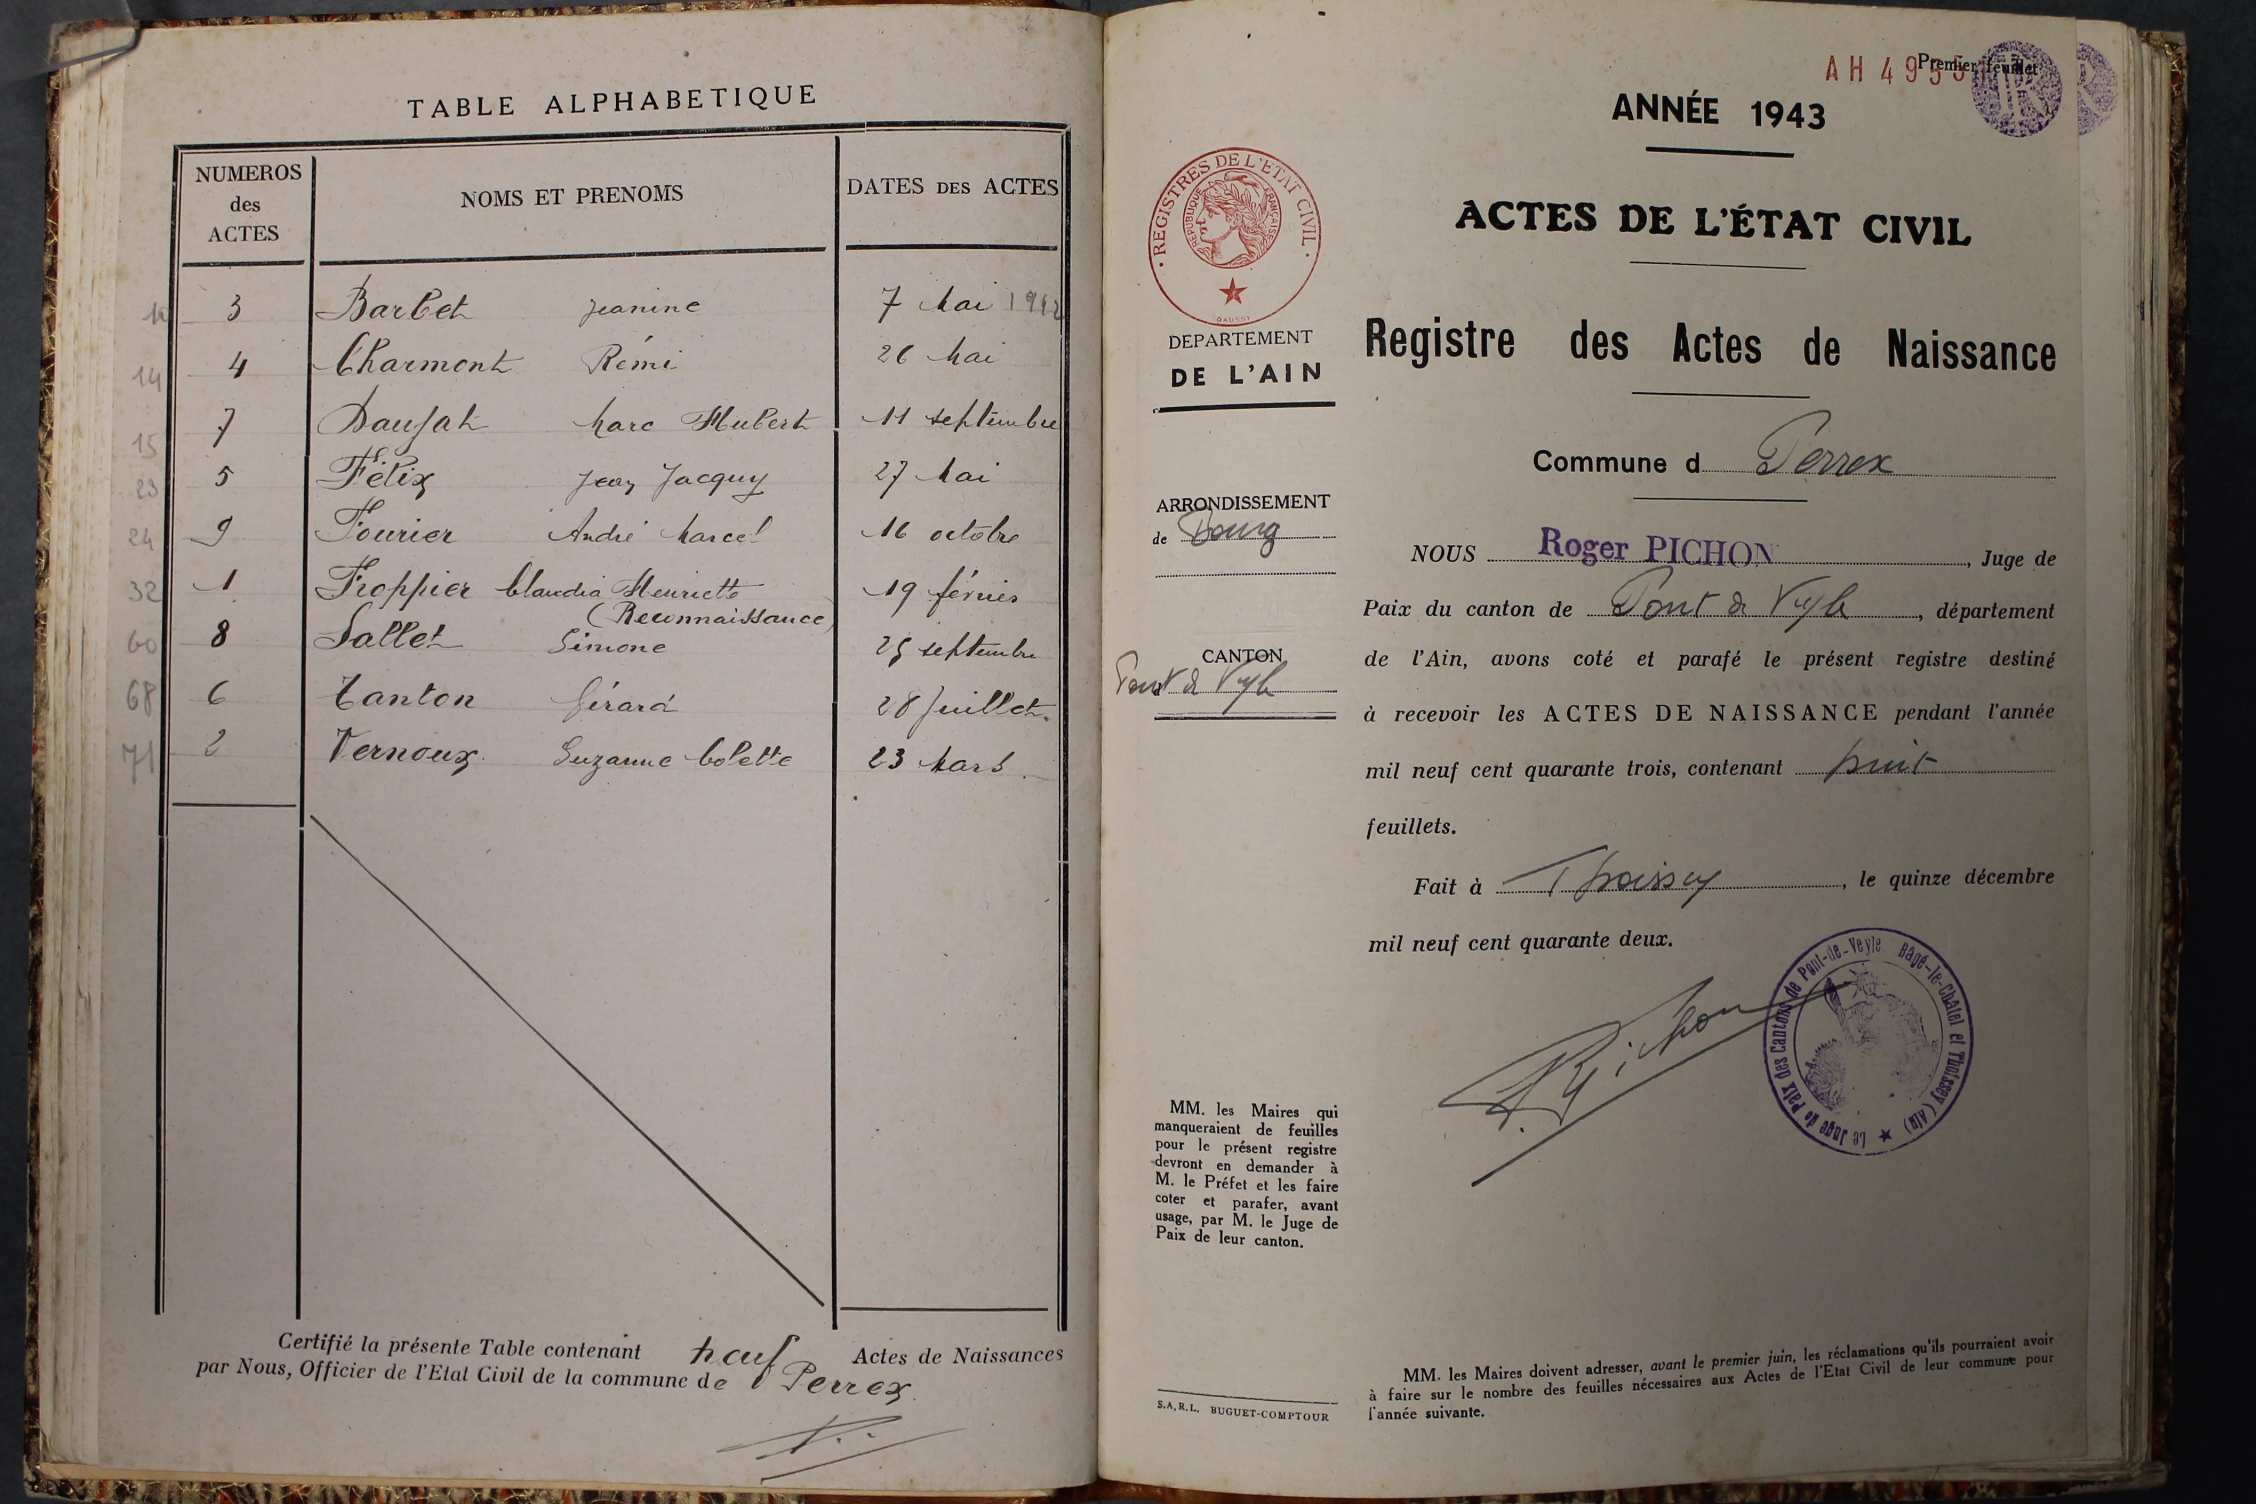 TABLE ALPHABETIQUE
NUMEROS des ACTES NOMS ET PRENOMS DATES DES ACTES
10 3 Barbet Jeanine 7 Mai 1942
14 4 Charmont Rémi 26 Mai
15 7 Daujat Marc Hubert 11 septembre
23 5 Félix Jean Jacques 27 Mai
24 9 Fourier André Marcel 16 octobre
32 1 Froppier Claudia Henriette 19 février
(Reconnaissance)
60 8 Sallet Simone 25 septembre
68 6 Tanton Gérard 28 Juillet
71 2 Vernoux Suzanne Colette 23 Mars
Certifié la présente Table contenant neuf Actes de Naissances
par Nous, Officier de l'Etat Civil de la commune de Perrex
Premier feuillet
AH 495
ANNÉE 1943
ACTES DE L'ÉTAT CIVIL
• REGISTRES DE L'ETAT CIVIL •
REPUBLIQUE FRANÇAISE
DAUSSY
DEPARTEMENT
DE L'AIN
Registre des Actes de Naissance
Commune d Perrex
ARRONDISSEMENT
de Bourg
CANTON
Pont de Veyle
NOUS Roger PICHON, Juge de
Paix du canton de Pont de Veyle, département
de l'Ain, avons coté et parafé le présent registre destiné
à recevoir les ACTES DE NAISSANCE pendant l'année
mil neuf cent quarante trois, contenant huit
feuillets.
Fait à Thoissey, le quinze décembre
mil neuf cent quarante deux.
R. Pichon
Le Juge de Paix des Cantons de Pont-de-Veyle Bâgé-le-Châtel et Thoissey (Ain)
MM. les Maires qui
manqueraient de feuilles
pour le présent registre
devront en demander à
M. le Préfet et les faire
coter et parafer, avant
usage, par M. le Juge de
Paix de leur canton.
S.A.R.L. BUGUET-COMPTOUR
MM. les Maires doivent adresser, avant le premier juin, les réclamations qu'ils pourraient avoir
à faire sur le nombre des feuilles nécessaires aux Actes de l'Etat Civil de leur commune pour
l'année suivante.